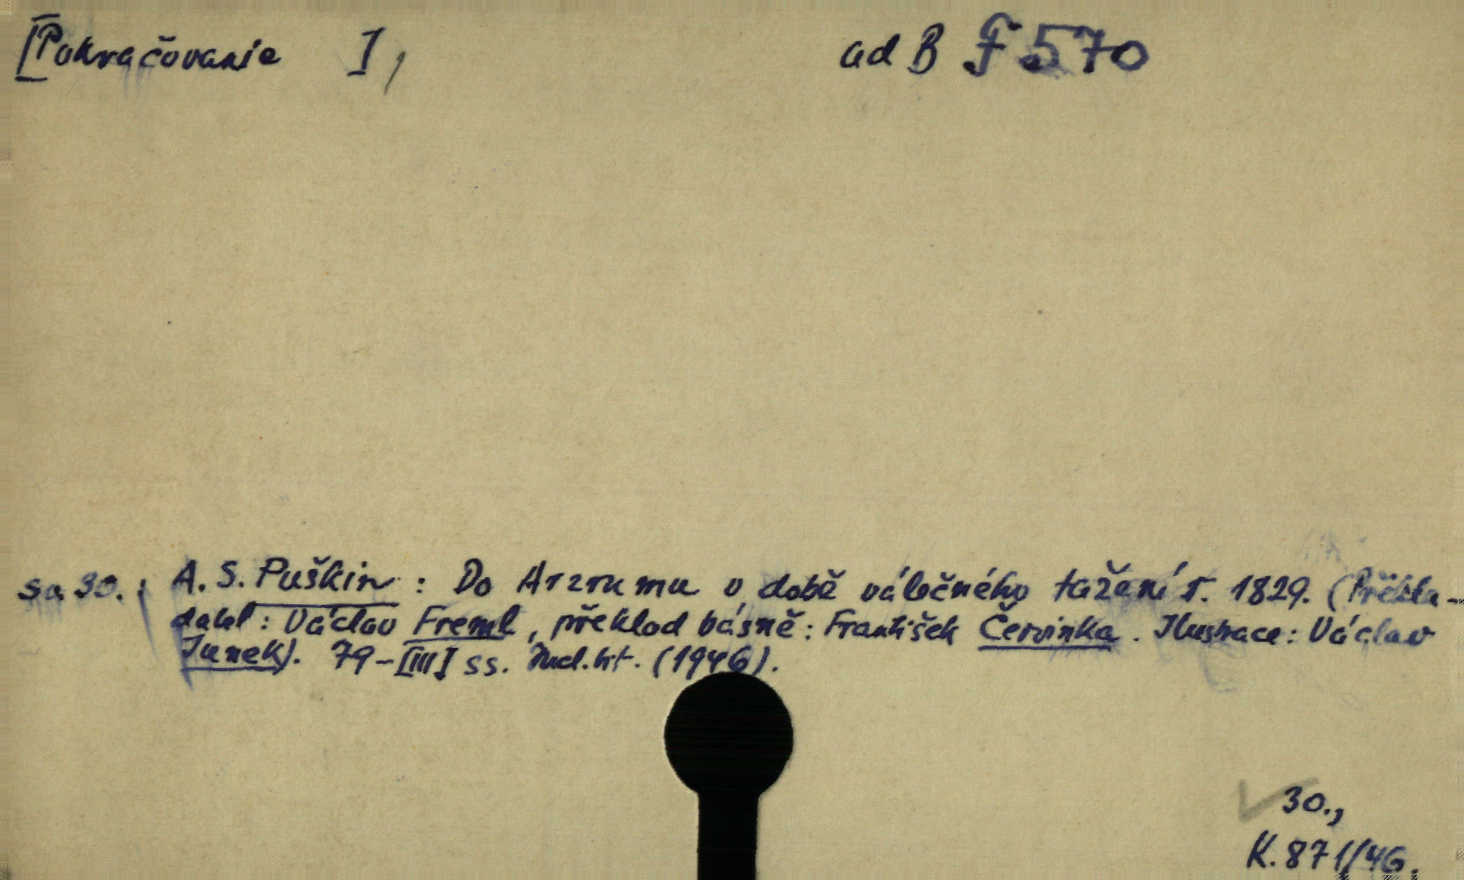 [Pokračovanie I,
ad B F 570
sv. 30.: A. S. Puškin: Do Arzrumu v době válečného tažení r. 1829. (Přeložila-
dakl: Václav Freml, překlad básně: František Červinka. Ilustrace: Václav
Junek). 79-[III] ss. (1946).
30.,
K. 871/46.